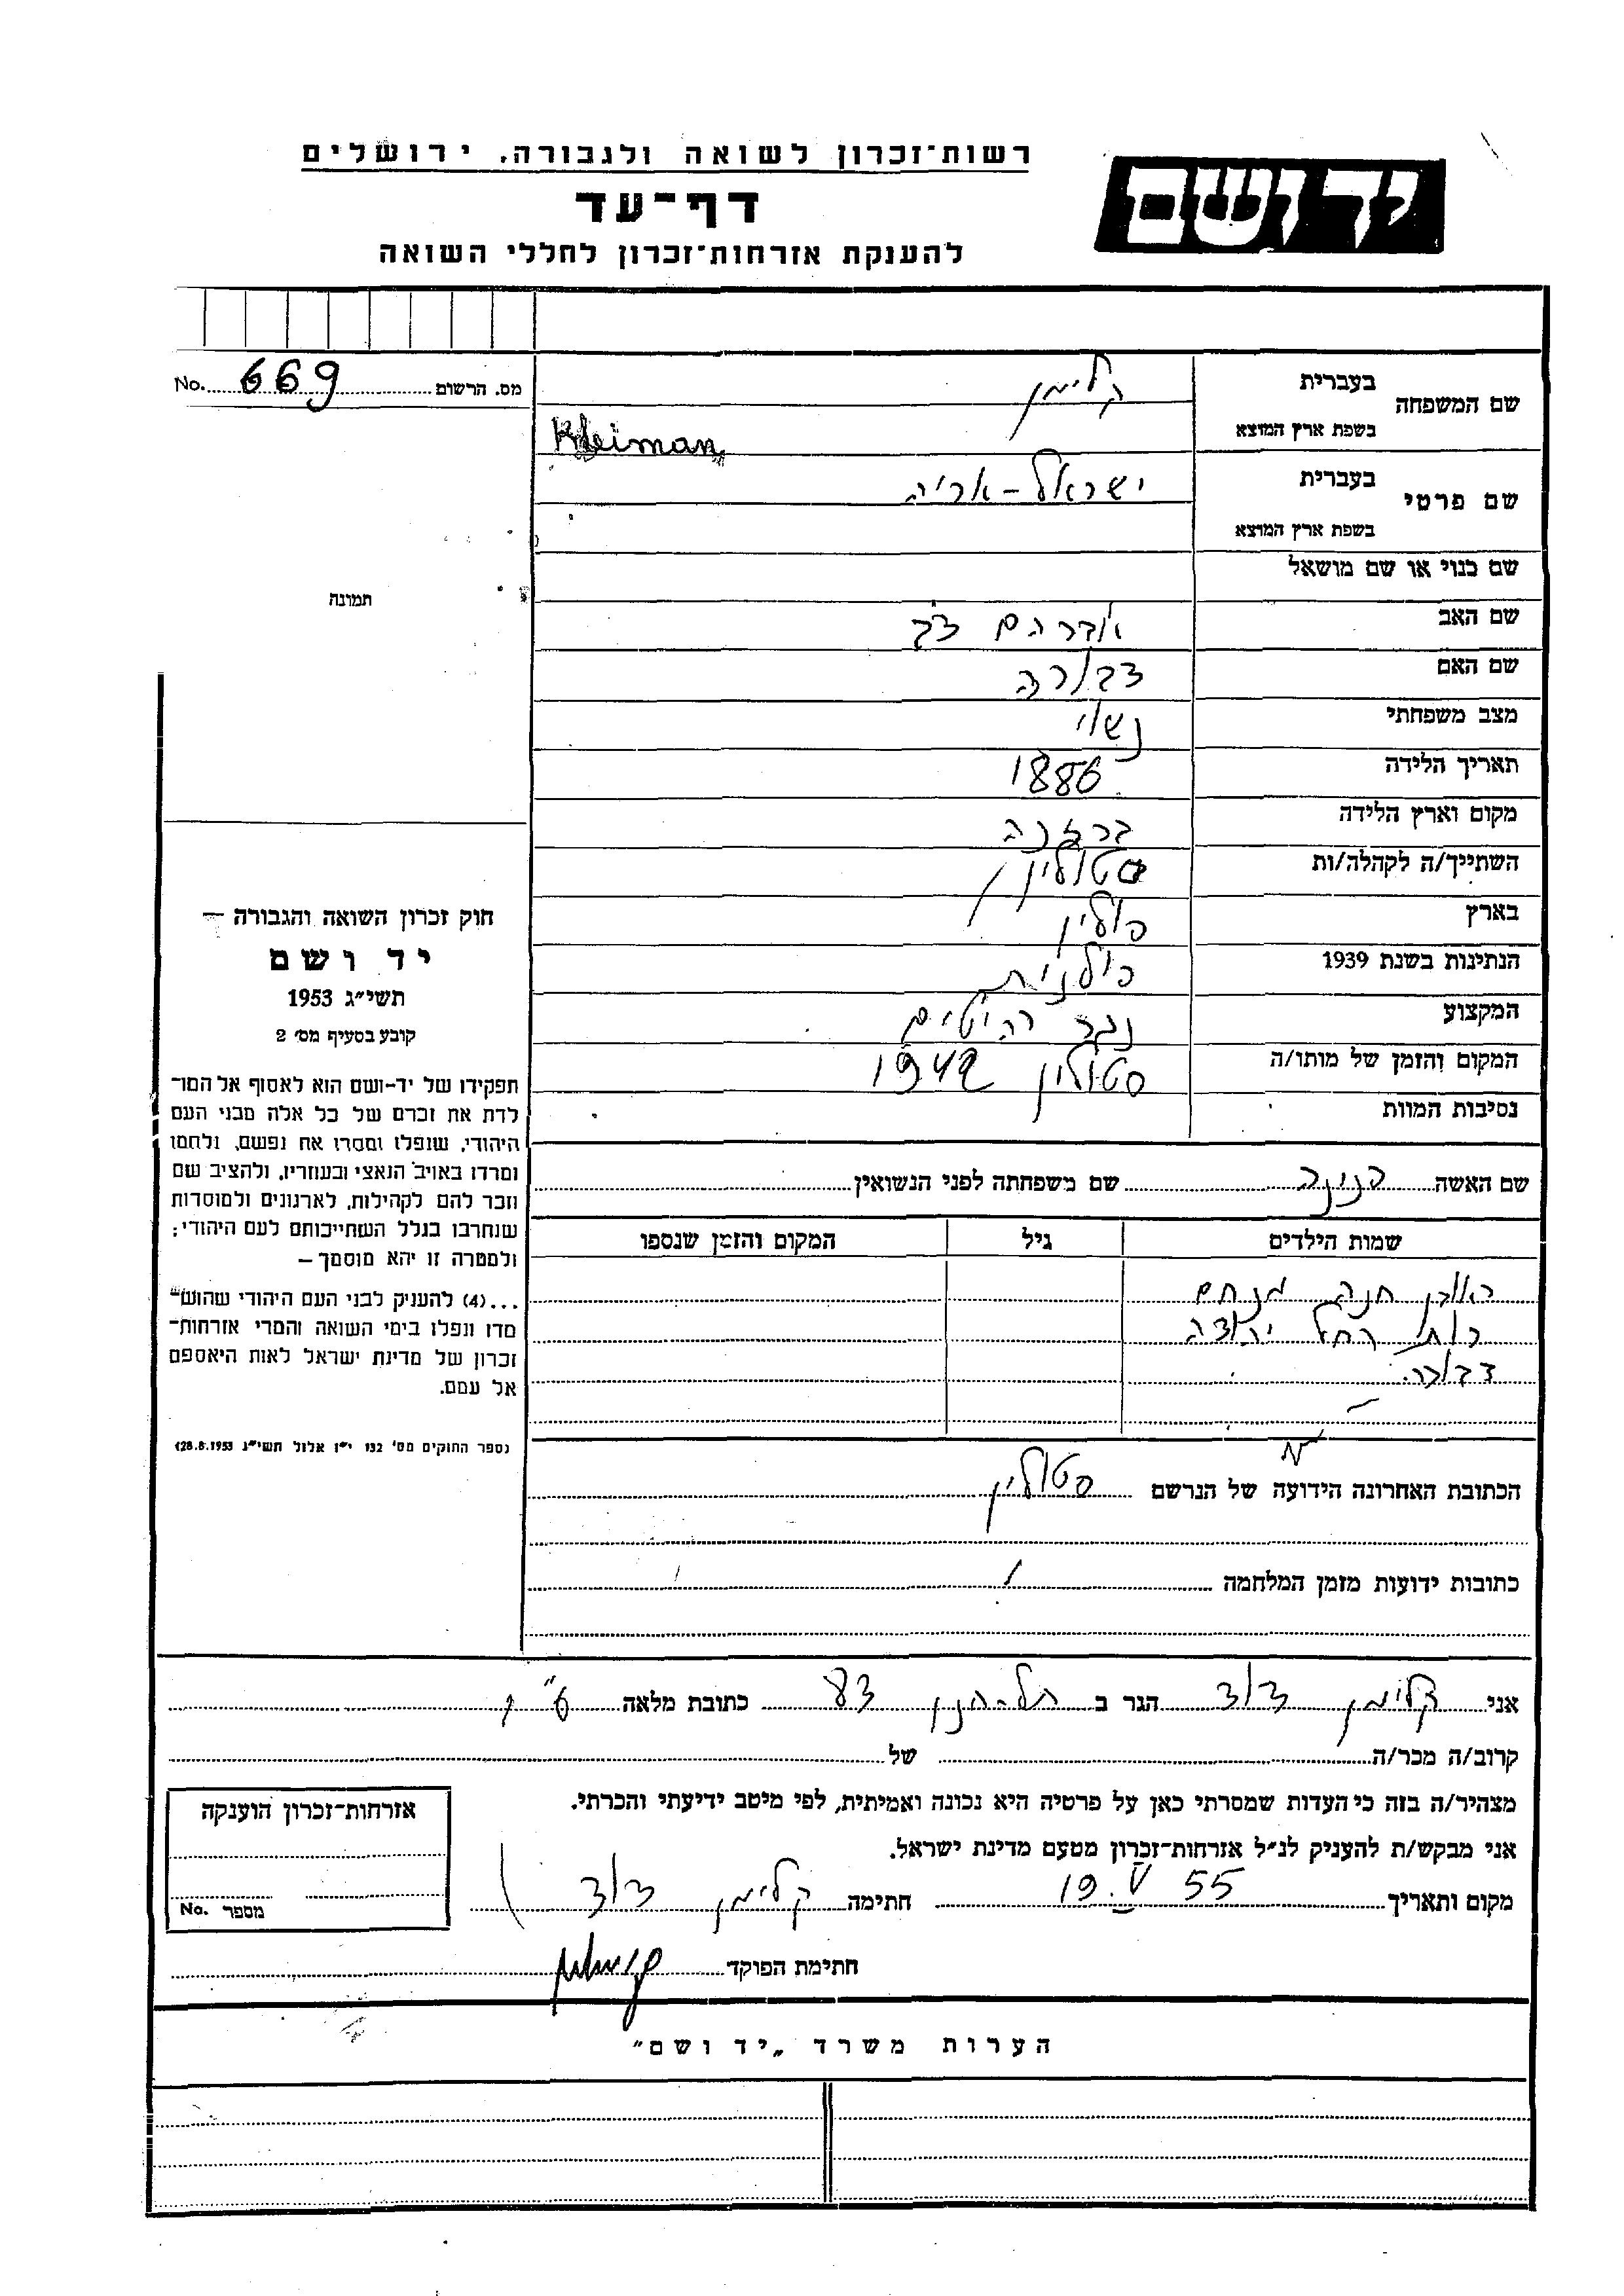 רשות־זכרון לשואה ולגבורה. ירושלים
יד ושם
דף־עד
להענקת אזרחות־זכרון לחללי השואה
שם המשפחה בעברית קלימן
בשפת ארץ המוצא Kleiman
מס. הרשום 669 No.
שם פרטי בעברית ישראל - אריה
בשפת ארץ המוצא
שם כנוי או שם מושאל
תמונה
שם האב אברהם צבי
שם האם דבורה
מצב משפחתי נשוי
תאריך הלידה 1886
מקום וארץ הלידה ברזנה
השתייך/ה לקהלה/ות סטולין
בארץ פולין
הנתינות בשנת 1939 פולנית
המקצוע נגר רהיטים
המקום והזמן של מותו/ה סטולין 1942
נסיבות המוות
חוק זכרון השואה והגבורה —
יד ושם
תשי״ג 1953
קובע בסעיף מס׳ 2
תפקידו של יד-ושם הוא לאסוף אל המו־
לדת את זכרם של כל אלה מבני העם
היהודי, שנפלו ומסרו את נפשם, נלחמו
ומרדו באויב הנאצי ובעוזריו, ולהציב שם
וזכר להם לקהילות, לארגונים ולמוסדות
שנחרבו בגלל השתייכותם לעם היהודי;
ולמטרה זו יהא מוסמך —
...(4) להעניק לבני העם היהודי שהוש־
מדו ונפלו בימי השואה והמרי אזרחות־
זכרון של מדינת ישראל לאות היאספם
אל עמם.
(ספר החוקים מס׳ 132 י״ז אלול תשי״ג 28.8.1953)
שם האשה שם משפחתה לפני הנשואין
שמות הילדים גיל המקום והזמן שנספו
ראובן חנה מנחם
רותי רחל יהודה
דבורה
הכתובת האחרונה הידועה של הנרשם סטולין
כתובות ידועות מזמן המלחמה
אני קלימן דוד הגר ב תל-חנן 83 כתובת מלאה
קרוב/ה מכר/ה של
מצהיר/ה בזה כי העדות שמסרתי כאן על פרטיה היא נכונה ואמיתית, לפי מיטב ידיעתי והכרתי.
אני מבקש/ת להעניק לנ״ל אזרחות־זכרון מטעם מדינת ישראל.
מקום ותאריך 19. V 55 חתימה קלימן דוד
אזרחות־זכרון הוענקה
מספר No.
חתימת הפוקד
הערות משרד „יד ושם״